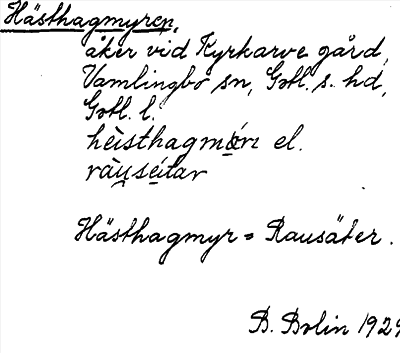 Hästhagmyren,
åker vid Kyrkarve gård,
Vamlingbo sn, Gotl. s. hd,
Gotl. l.
hèisthagmọ́rı el.
ràu̯séitar
Hästhagmyr = Rausäter.
B. Bolin 1929